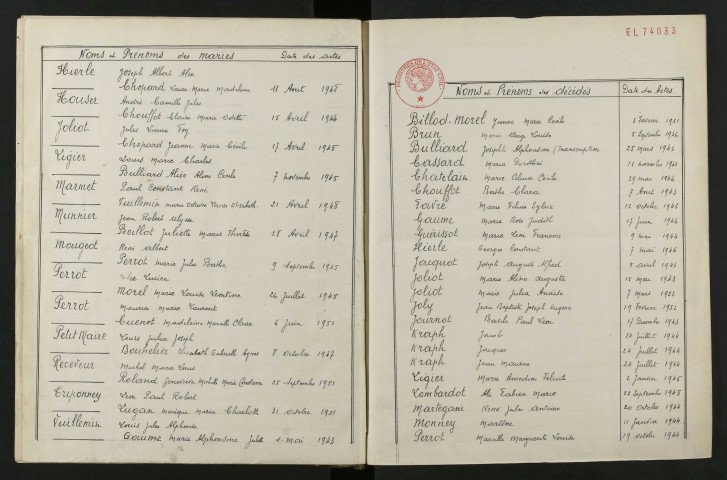 Noms et Prénoms des mariés Date des actes
Hierle Joseph Albert Alix
Chopard Laure Marie Madeleine 11 Aout 1945
Houser André Camille Jules
Chouffot Claire Marie Odette 15 Avril 1944
Joliot Jules Lucien Foy
Chopard Jeanne Marie Cécile 17 Avril 1945
Ligier Louis Marie Charles
Bulliard Alice Aline Cécile 7 novembre 1945
Marmet Paul Constant René
Vuillemin Marie Louise Elisabeth 21 Avril 1948
Munnier Jean Robert Ulysse
Boillot Juliette Marie Thérèse 28 Avril 1947
Mougeot René Albert
Perrot Marie Julie Berthe 9 septembre 1945
Perrot Lucien
Morel Marie Louise Léontine 26 Juillet 1945
Perrot Maurice Marie Laurent
Cuenot Madeleine Marcelle Claire 6 Juin 1951
Petit Maire Louis Julien Joseph
Bouhelier Elisabeth Gabrielle Agnès 8 octobre 1947
Receveur Michel Marie Louis
Roland Geneviève Michelle Marie 25 septembre 1951
Triponney Léon Paul Robert
Lugan Monique Marie Charlotte 31 octobre 1951
Vuillemin Louis Jules Alphonse
Gaume Marie Alphonsine 4 Mai 1943
EL 74033
Noms et Prénoms des décédés Date des Actes
Billod-Morel Yvonne Marie Cécile 3 Février 1951
Brun Marie Louise 5 Septembre 1946
Bulliard Joseph Alphonsin (Transcription 25 mars 1943
Cassard Marie Dorothée 15 novembre 1944
Chatelain Marie Célina Cécile 29 mai 1946
Chouffot Berthe Clara 7 Avril 1943
Favre Marie Félicie Sylvie 12 octobre 1948
Gaume Marie Rose Judith 17 Juin 1946
Guaissot Marie Léon Francois 9 mai 1944
Hierle Georges Constant 7 mai 1946
Jacquot Joseph Auguste Alfred 5 avril 1943
Joliot Marie Aline Auguste 15 mai 1943
Joliot Marie Julia Anaïse 7 mars 1952
Joly Jean Baptiste Joseph Eugène 19 Février 1952
Journot Basile Paul Léon 17 Décembre 1943
Kraph Jacob 24 Juillet 1944
Kraph Jacques 24 Juillet 1944
Kraph Jean Maurice 24 Juillet 1944
Ligier Marie Amédine Félicité 2 Janvier 1945
Lombardot Fabien Marie 22 Septembre 1945
Martegani René Jules Antoine 20 octobre 1944
Monney Martène 11 Janvier 1944
Perrot Marcelle Marguerite Louise 19 octobre 1944